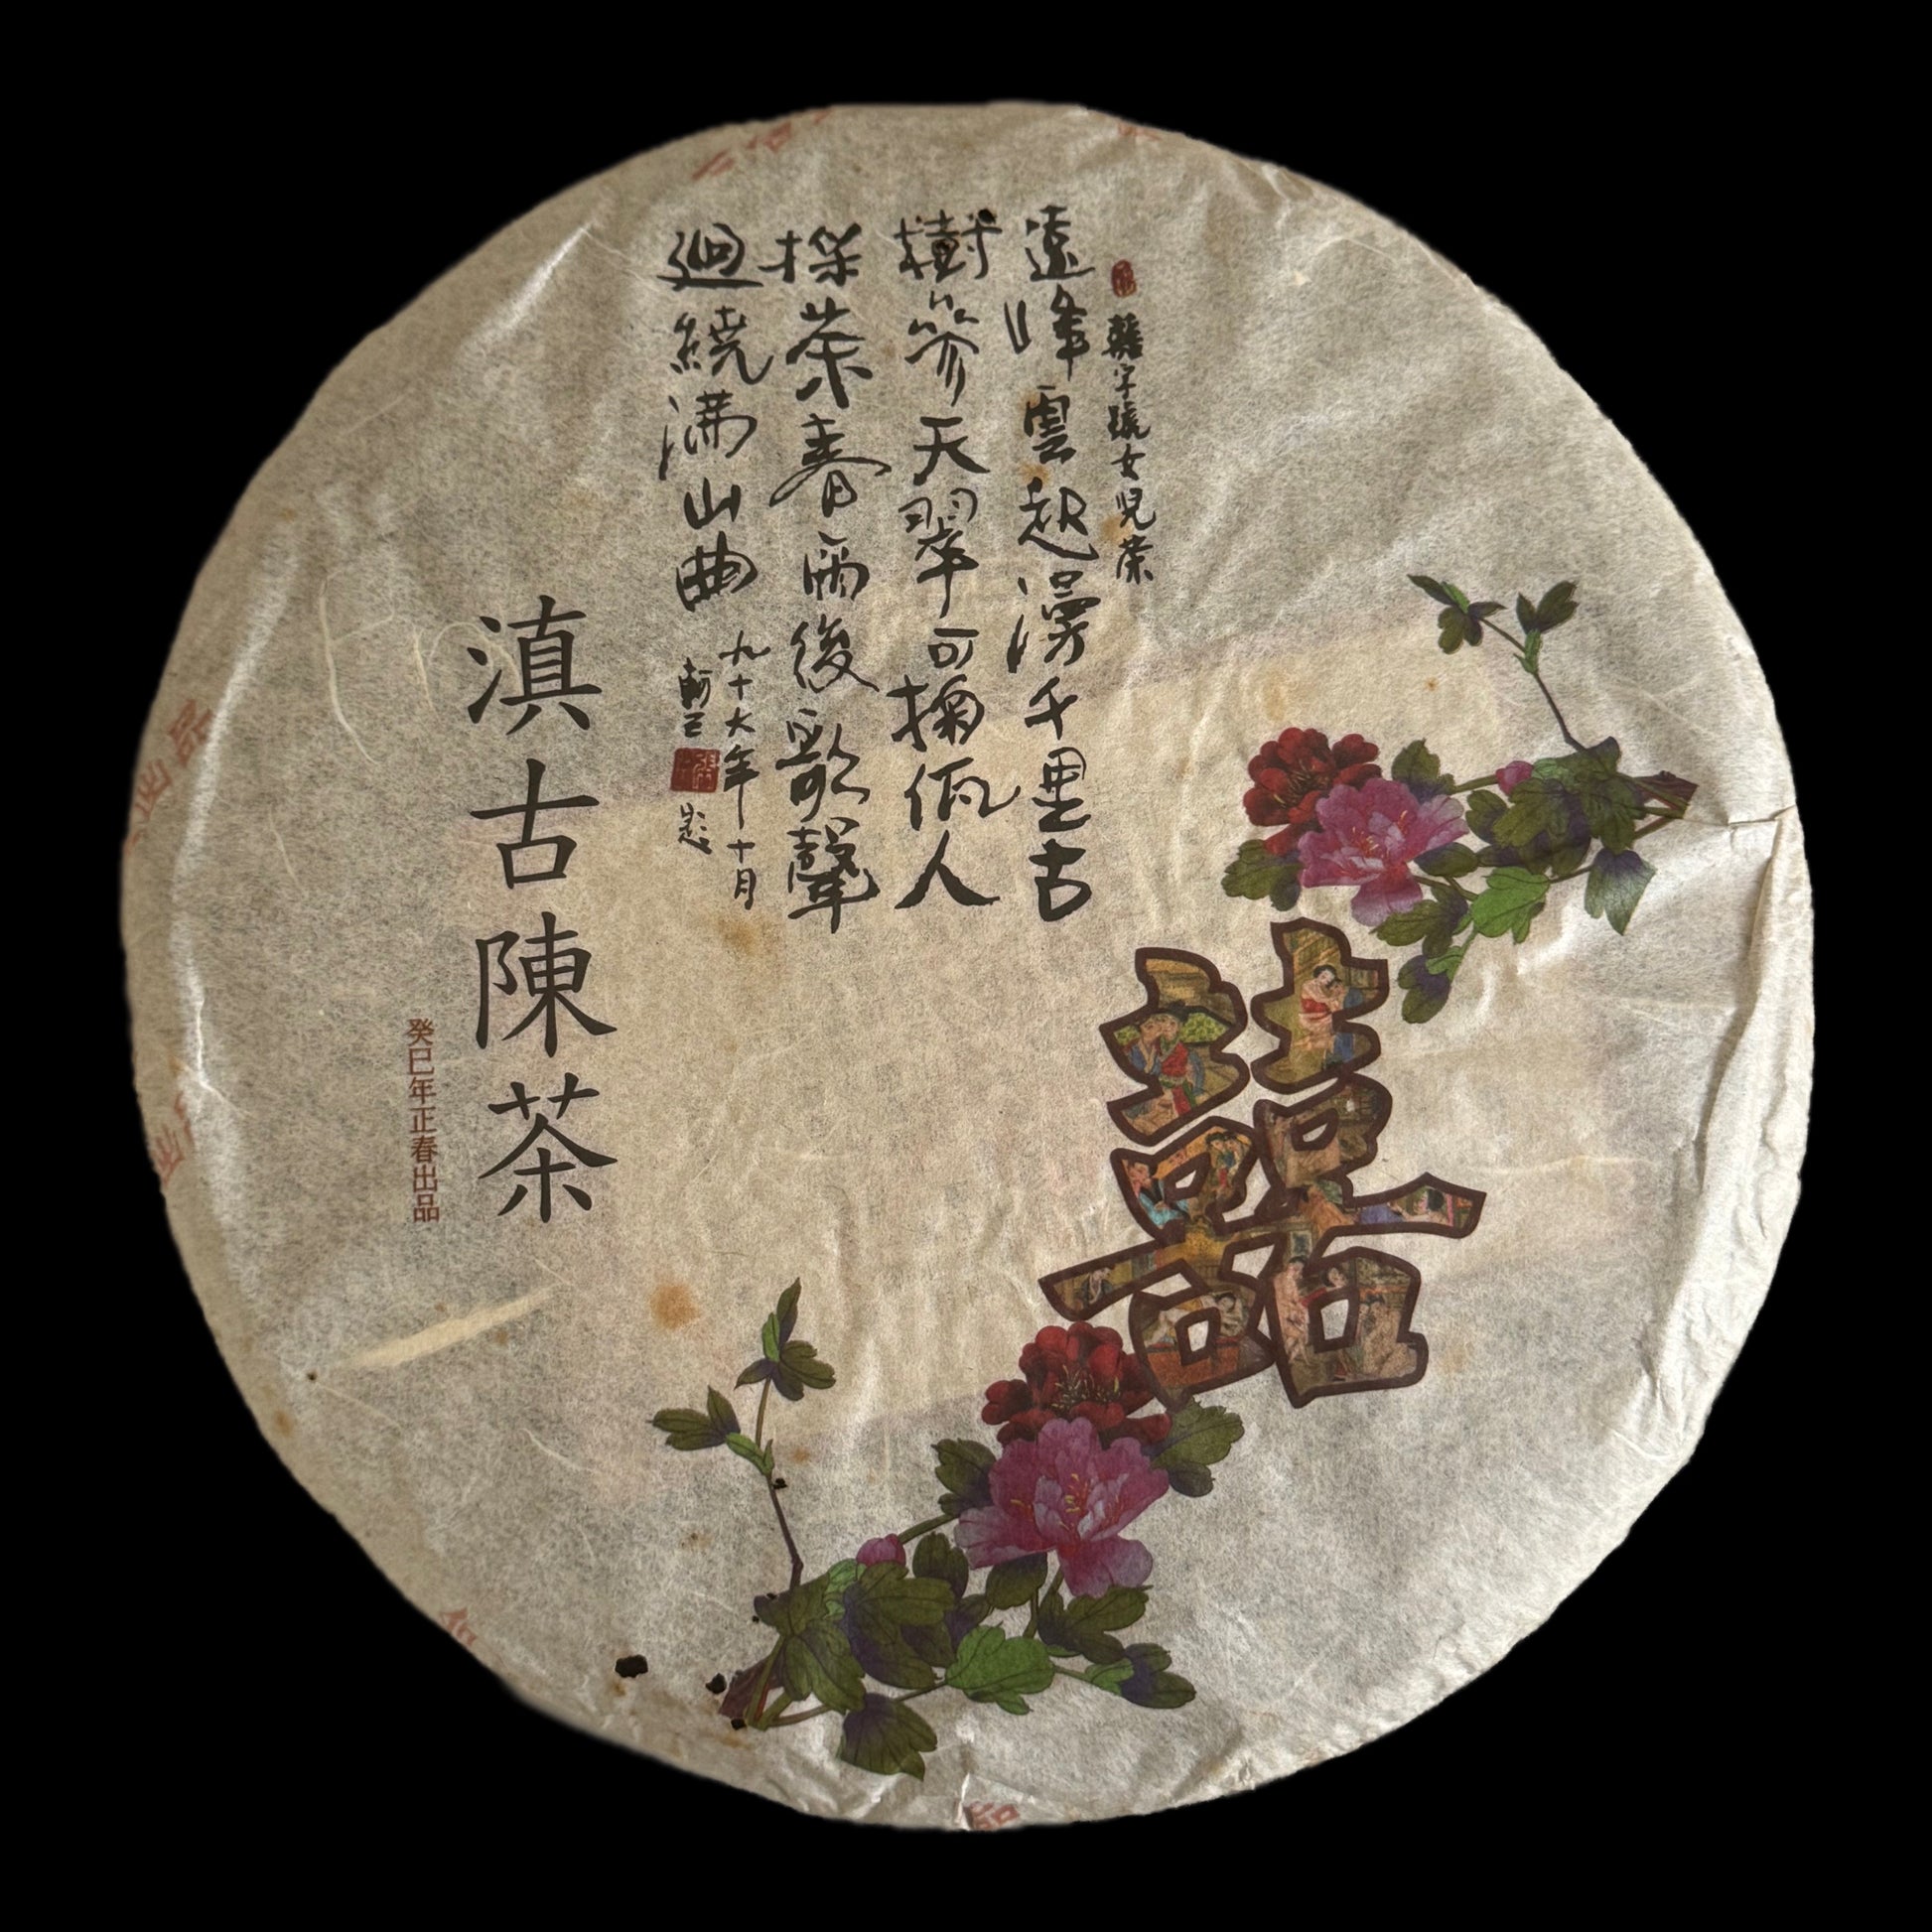 囍字號女兒茶
遠峰雲起漫千里古
樹參天翠可掬佤人
採茶春雨後歌聲
迴繞满山曲
九十六年十月
滇古陳茶
癸巳年正春出品
囍